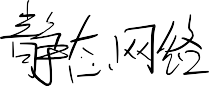 静态网络